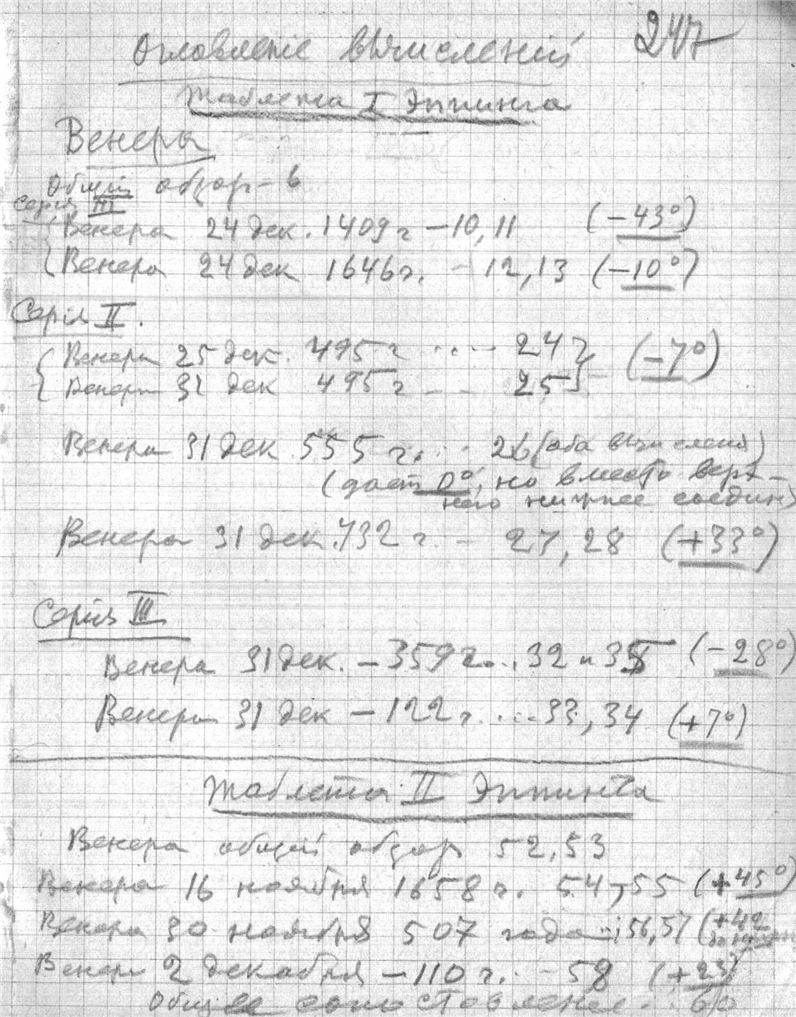 247
Оглавленіе вычисленій
Таблета I Эппинга
Венеры
Общій обзор – 6
Серія III
Венера 24 дек. 1409 г – 10, 11 (–43°)
Венера 24 дек 1646 г. – 12, 13 (–10°)
Серія II.
Венера 25 дек. 495 г .... 24
Венера 31 дек 495 г – – 25 (–7°)
Венера 31 дек 555 г. .. 26 (оба вычисления)
(дает 0°, но вместо верх–
него нижнее соедин)
Венера 31 дек. 732 г. – 27, 28 (+33°)
Серія III
Венера 31 дек. – 359 г... 32 и 35 (–28°)
Венера 31 дек – 122 г. ... 33, 34 (+7°)
Таблета II Эппинга
Венера общій обзор 52, 53
Венера 16 ноября 1658 г. 54, 55 (+45°)
Венера 30 ноября 507 года .. 56, 57 (+42
Венера 2 декабря – 110 г. – 58 (+23)
Общее сопоставление . 60